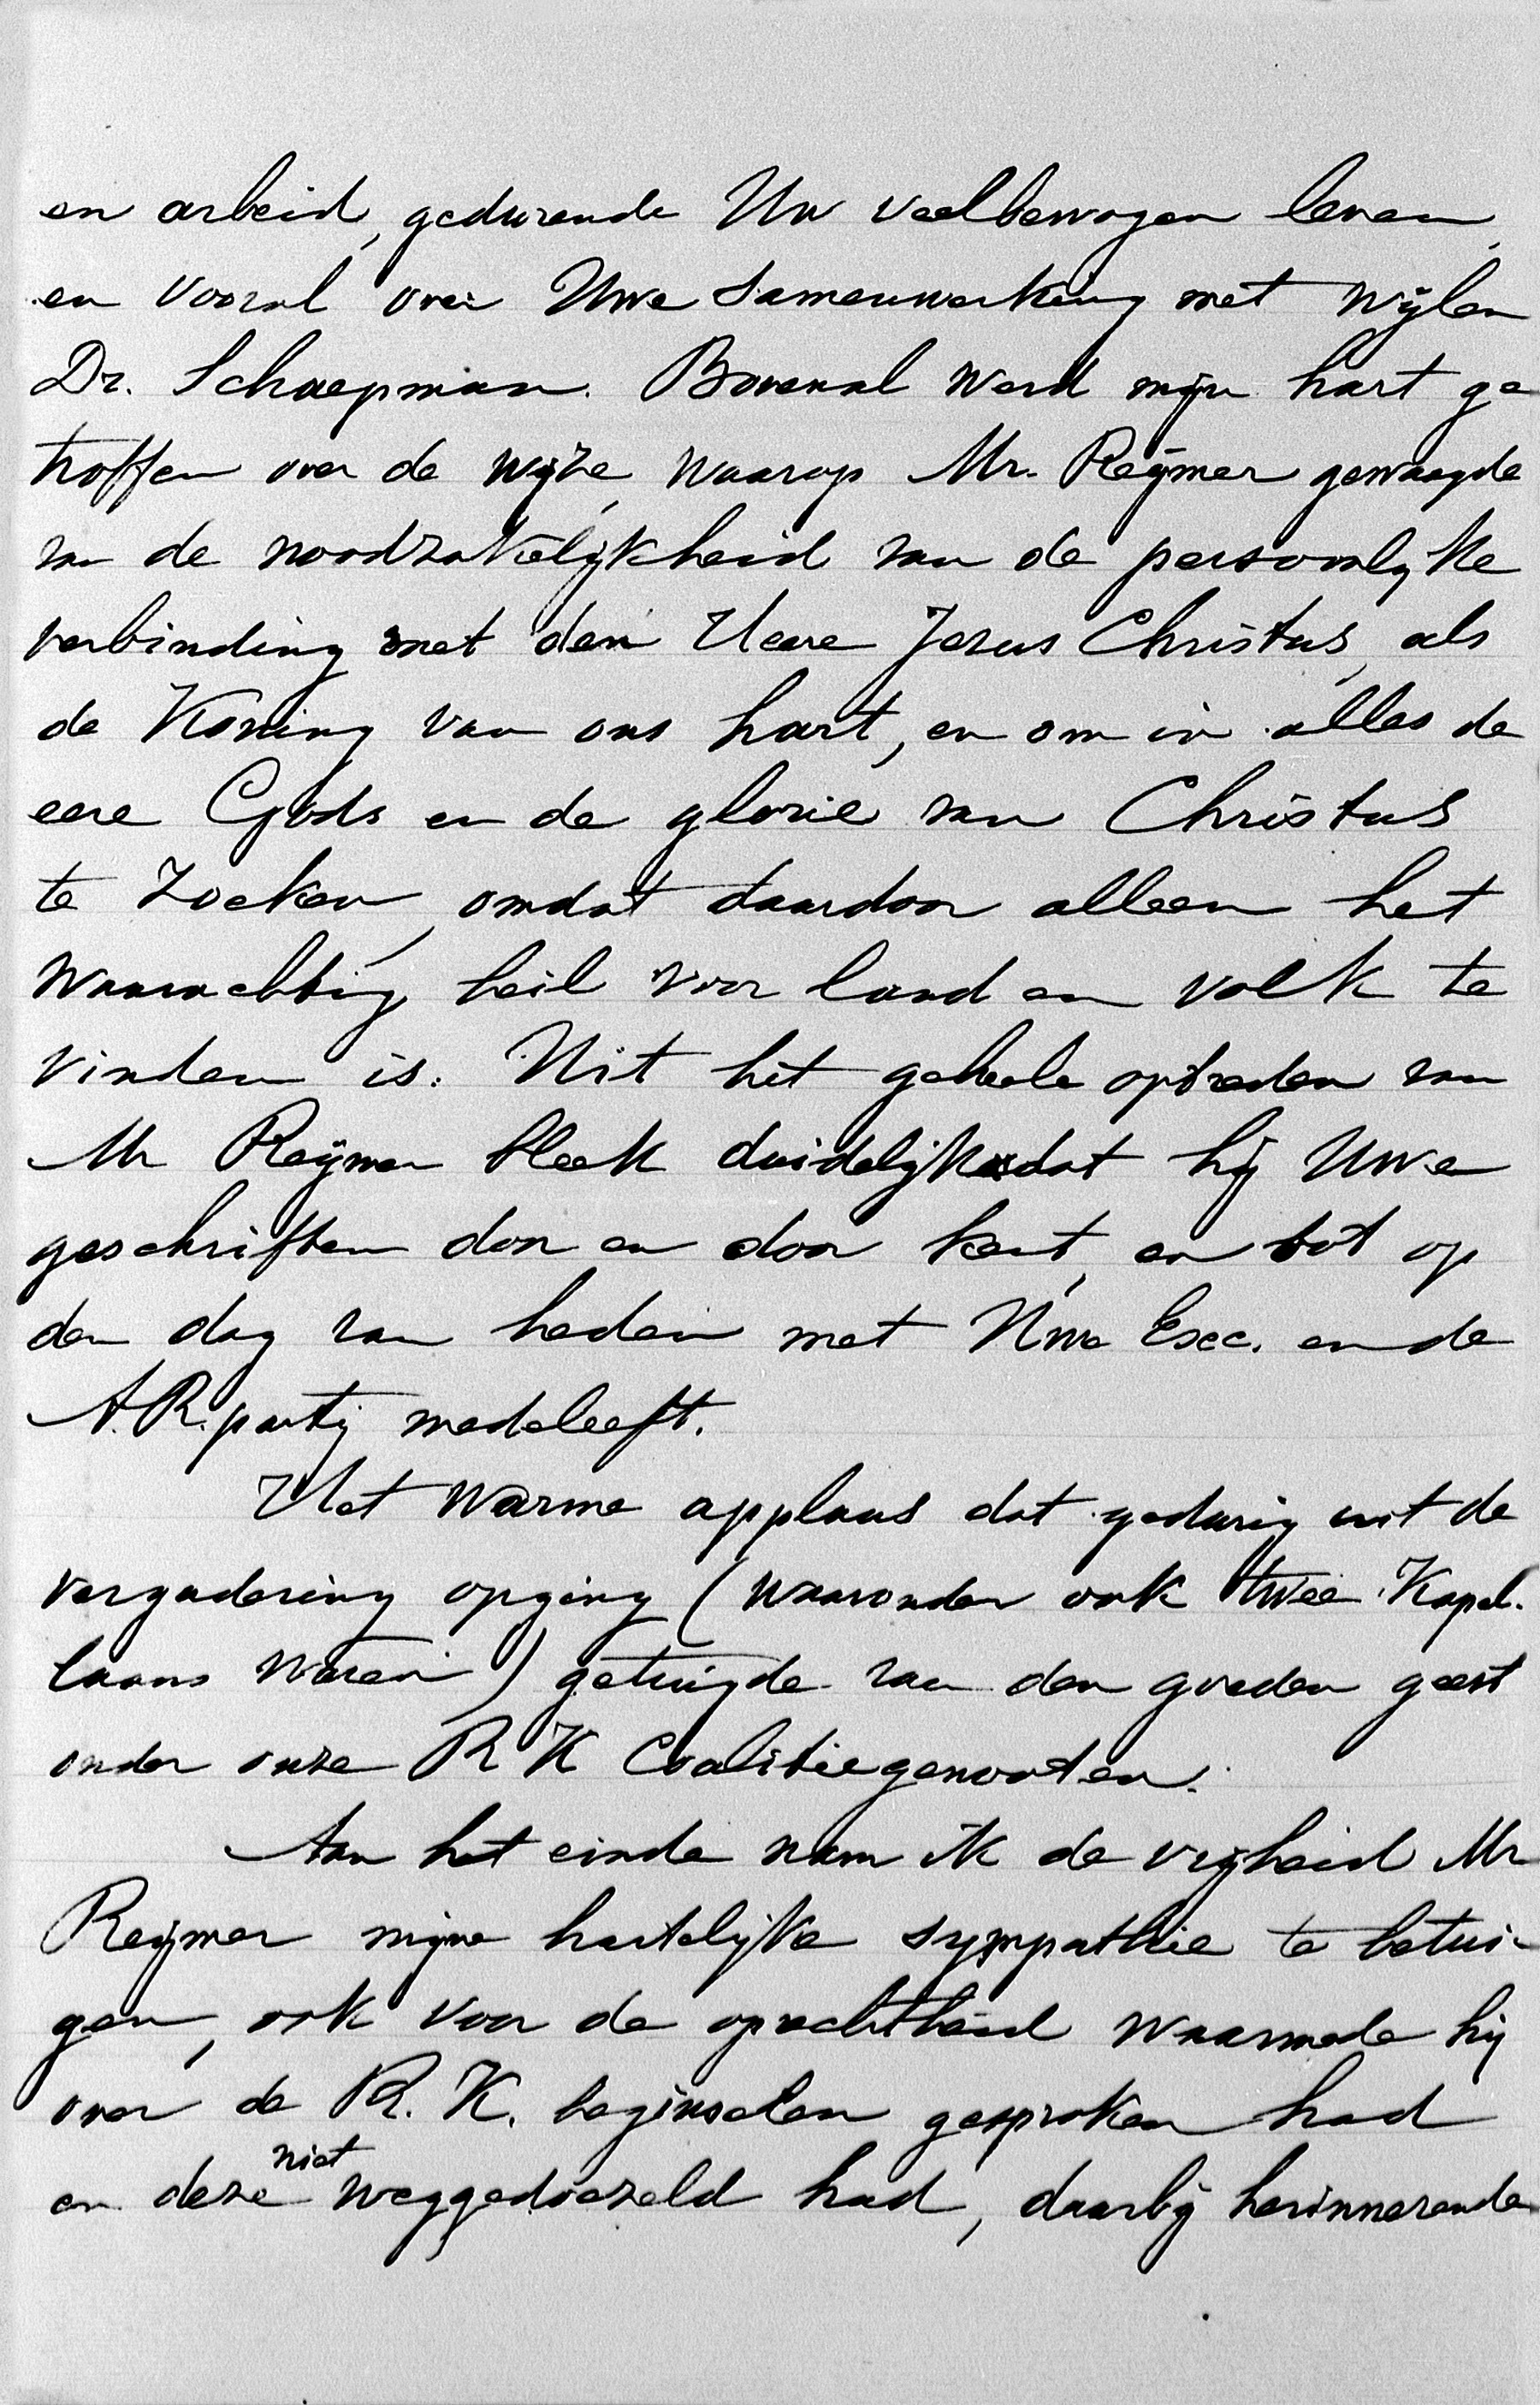 en arbeid, gedurende Uw veelbewogen leven,
en vooral over Uwe samenwerking met wijlen
Dr. Schaepman. Bovenal werd mijn hart ge
troffen over de wijze, waarop Mr. Reijmer gewaagde
van de noodzakelijkheid van de persoonlijke
verbinding met den Heere Jezus Christus, als
de Koning van ons hart, en om in alles de
eere Gods en de glorie van Christus
te zoeken, omdat daardoor alleen het
waarachtig heil voor land en volk te
vinden is. Uit het geheele optreden van
Mr Reijmer bleek duidelijk dat hij Uwe
geschriften door en door kent, en tot op
den dag van heden met Uwe Exc. en de
A.R. partij medeleeft.
Het warme applaus dat gedurig uit de
vergadering opging (waaronder ook twee Kapel-
laans waren) getuigde van den goeden geest
onder onze R K Coalitiegenooten.
Aan het einde nam ik de vrijheid Mr
Reijmer mijne hartelijke sympathie te betui-
gen, ook voor de oprechtheid waarmede hij
over de R. K. beginselen gesproken had
en deze niet weggedoezeld had, daarbij herinnerende